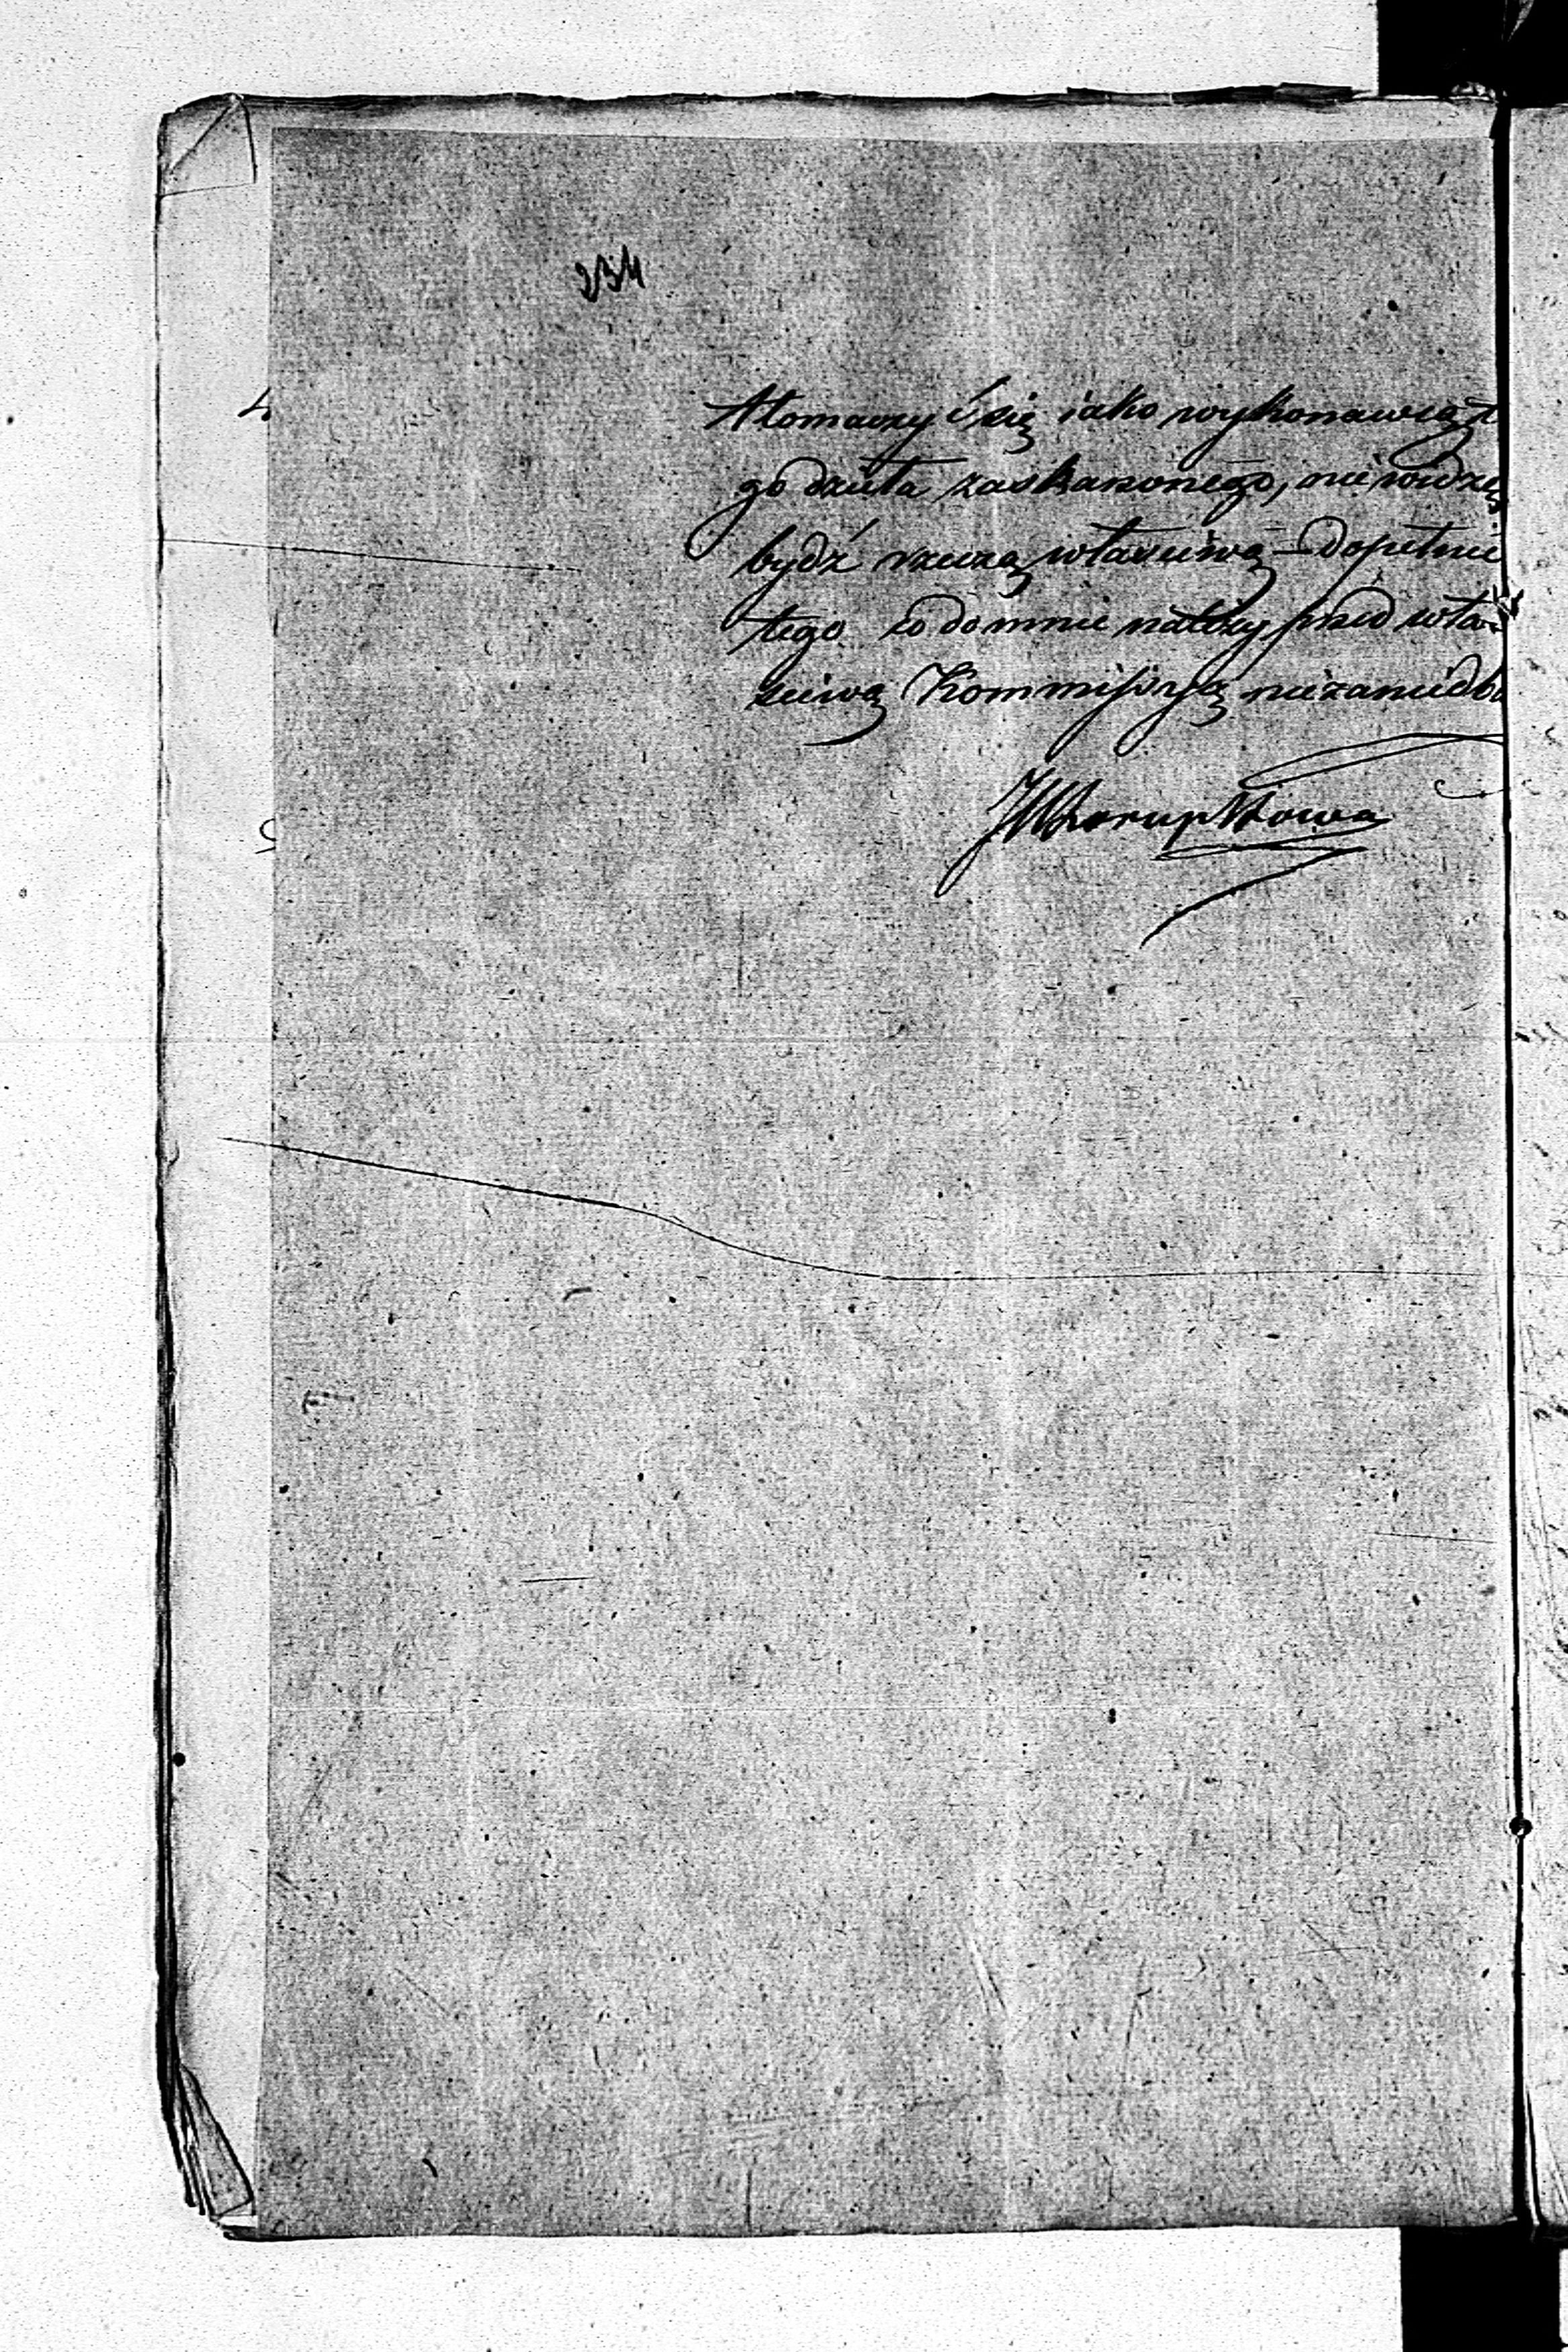 234
tłomaczyć się iako wykonawcą t
go dzieła zaskarzonego, nie widzę
bydź rzeczą właściwą – dopełnić
tego co do mnie należy przed wła=
sciwą Kommissyą niezaniedba